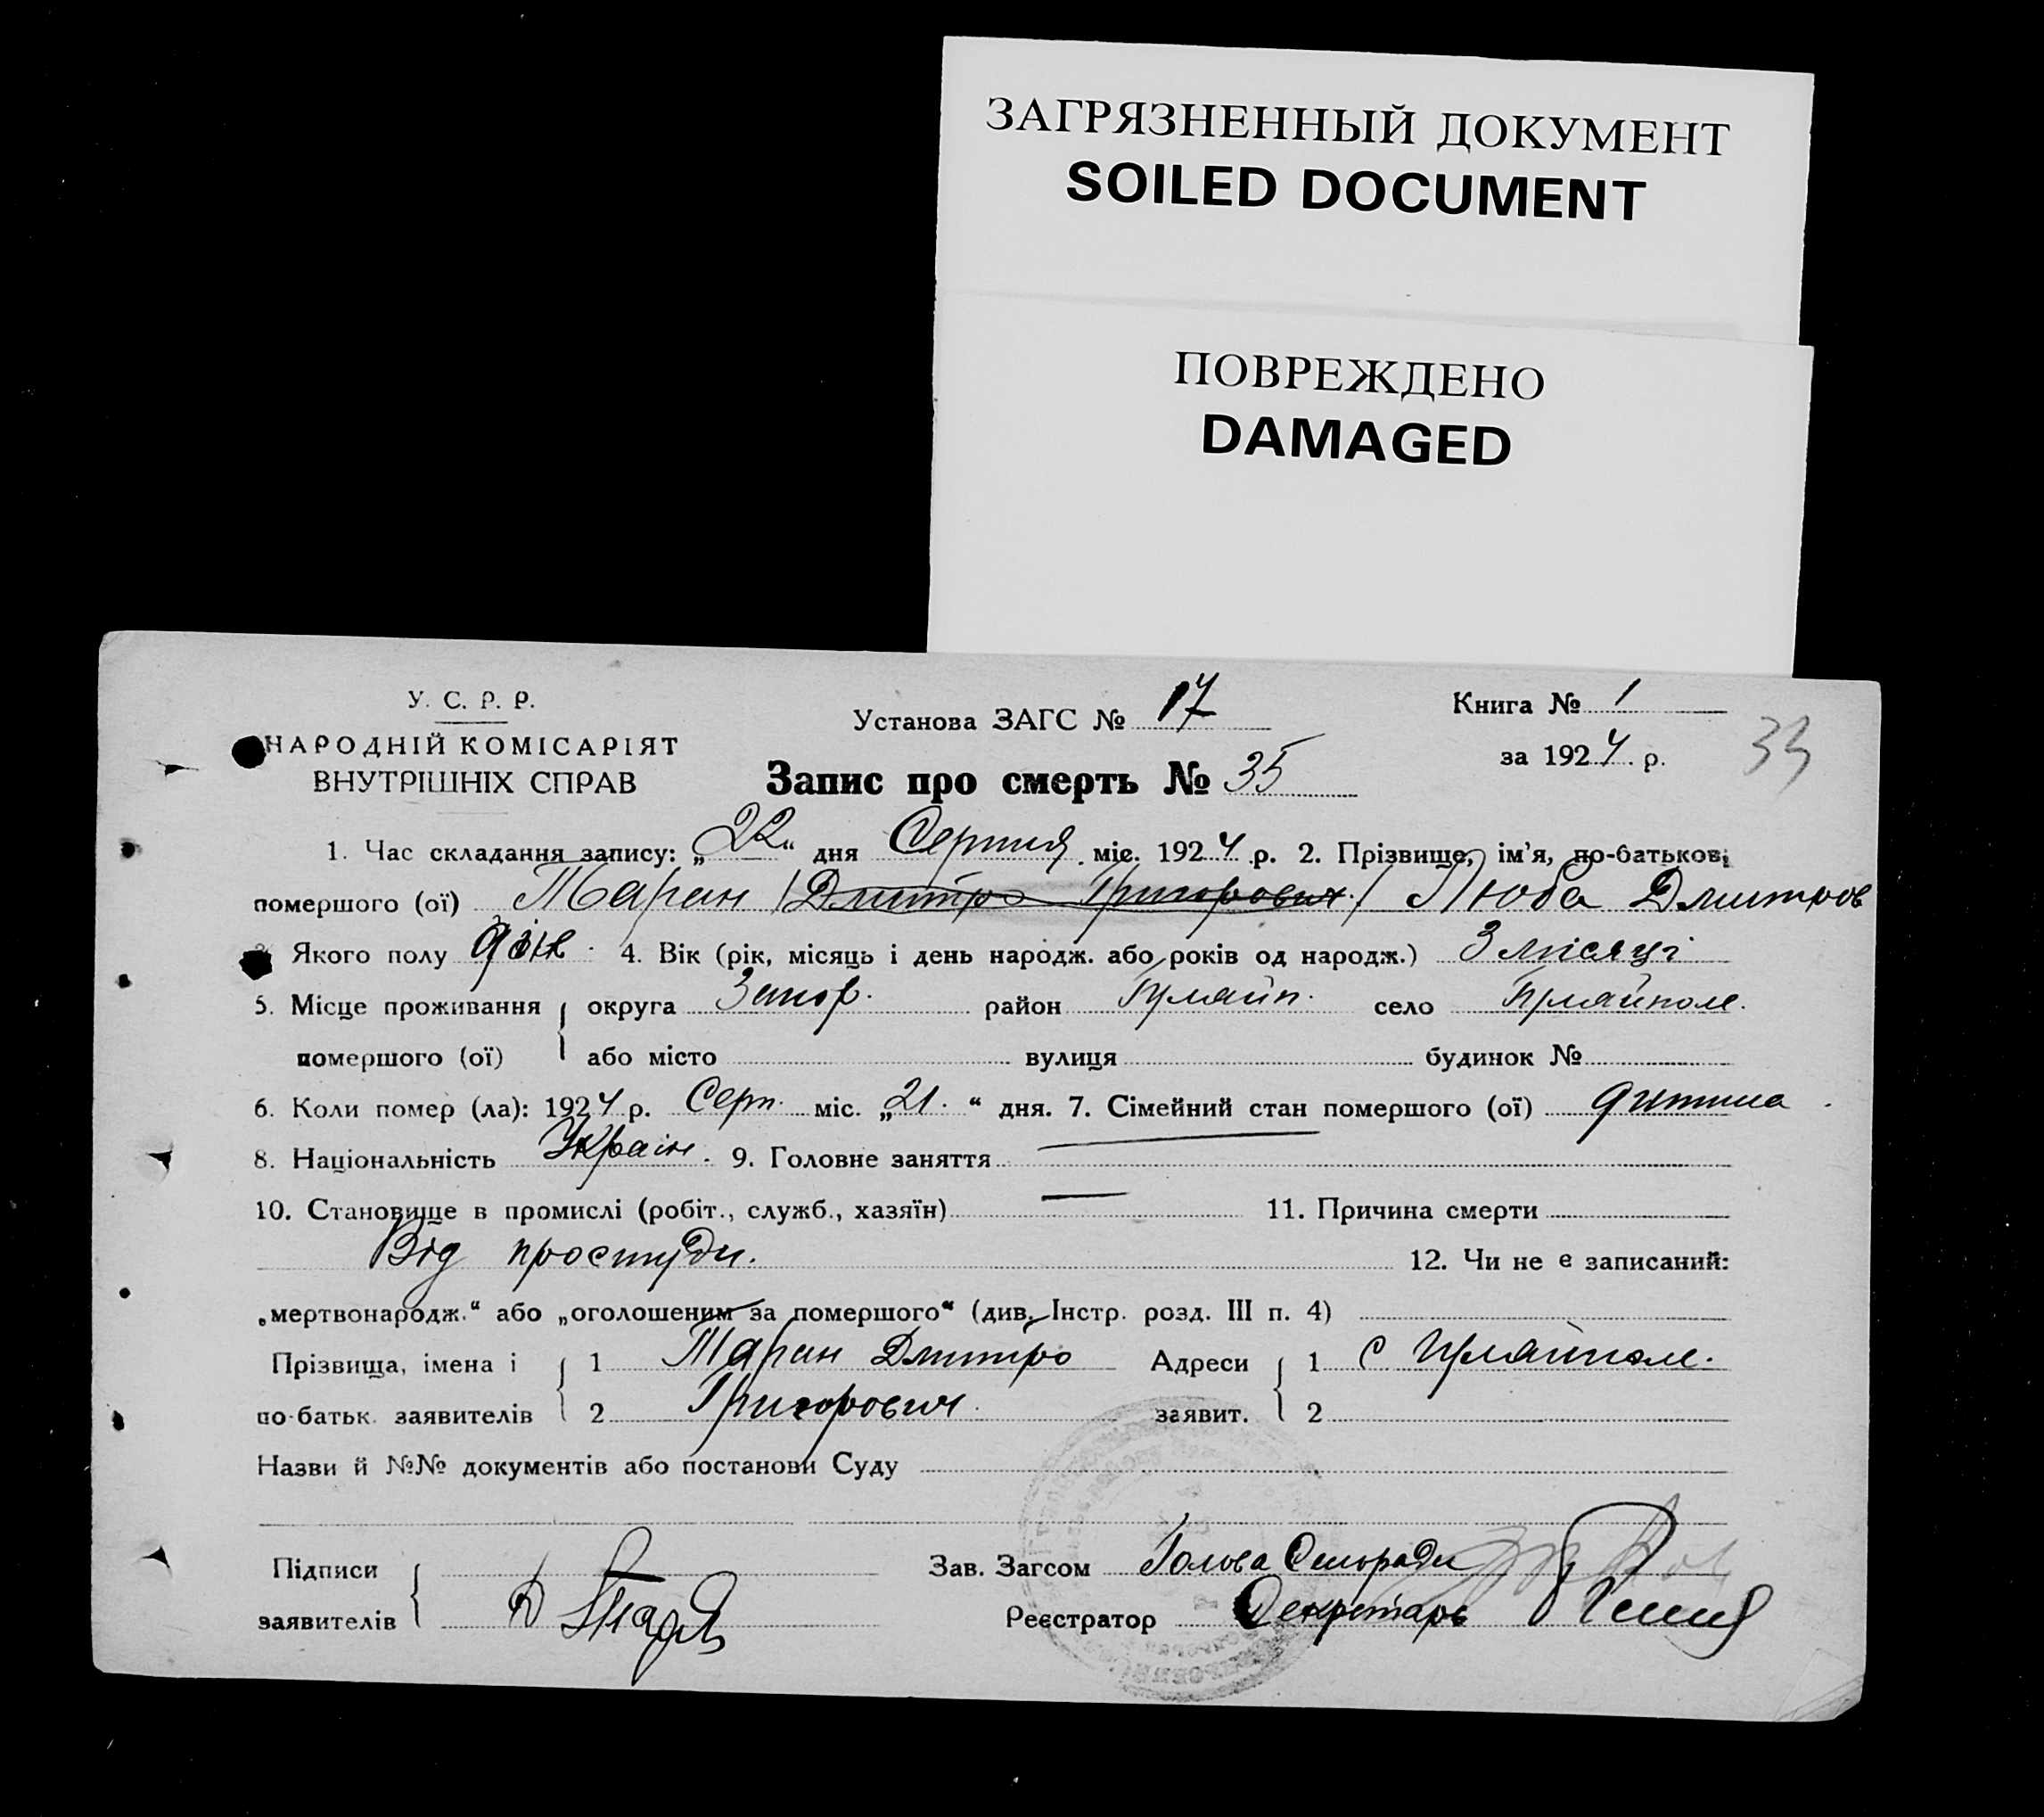 ЗАГРЯЗНЕННЫЙ ДОКУМЕНТ
SOILED DOCUMENT
ПОВРЕЖДЕНО
DAMAGED
У. С. Р. Р.
НАРОДНІЙ КОМІСАРІЯТ
ВНУТРІШНІХ СПРАВ
Установа ЗАГС № 17
Книга № 1
за 1924 р.
33
Запис про смерть № 35
1. Час складання запису: „22“ дня Серпня міс. 1924 р. 2. Прізвище, ім'я, по-батькові
помершого (ої) Таран /Дмитро Григорович/ Люба Дмитров
Якого полу жін. 4. Вік (рік, місяць і день народж. або років од народж.) 3 місяці
5. Місце проживання округа Запор. район Гуляйп. село Гуляйполе.
помершого (ої) або місто вулиця будинок №
6. Коли помер (ла): 1924 р. Серп. міс. „21.“ дня. 7. Сімейний стан помершого (ої) дитина
8. Національність Україн. 9. Головне заняття —
10. Становище в промислі (робіт., служб., хазяїн) — 11. Причина смерти
Від простуди. 12. Чи не є записаний:
„мертвонародж.“ або „оголошеним за помершого“ (див. Інстр. розд. III п. 4)
Прізвища, імена і 1 Таран Дмитро Адреси 1 с Гуляйполе.
по-батьк. заявителів 2 Григорович заявит. 2
Назви й №№ документів або постанови Суду
Підписи Зав. Загсом Голова Сельради
заявителів Реєстратор Секретарь